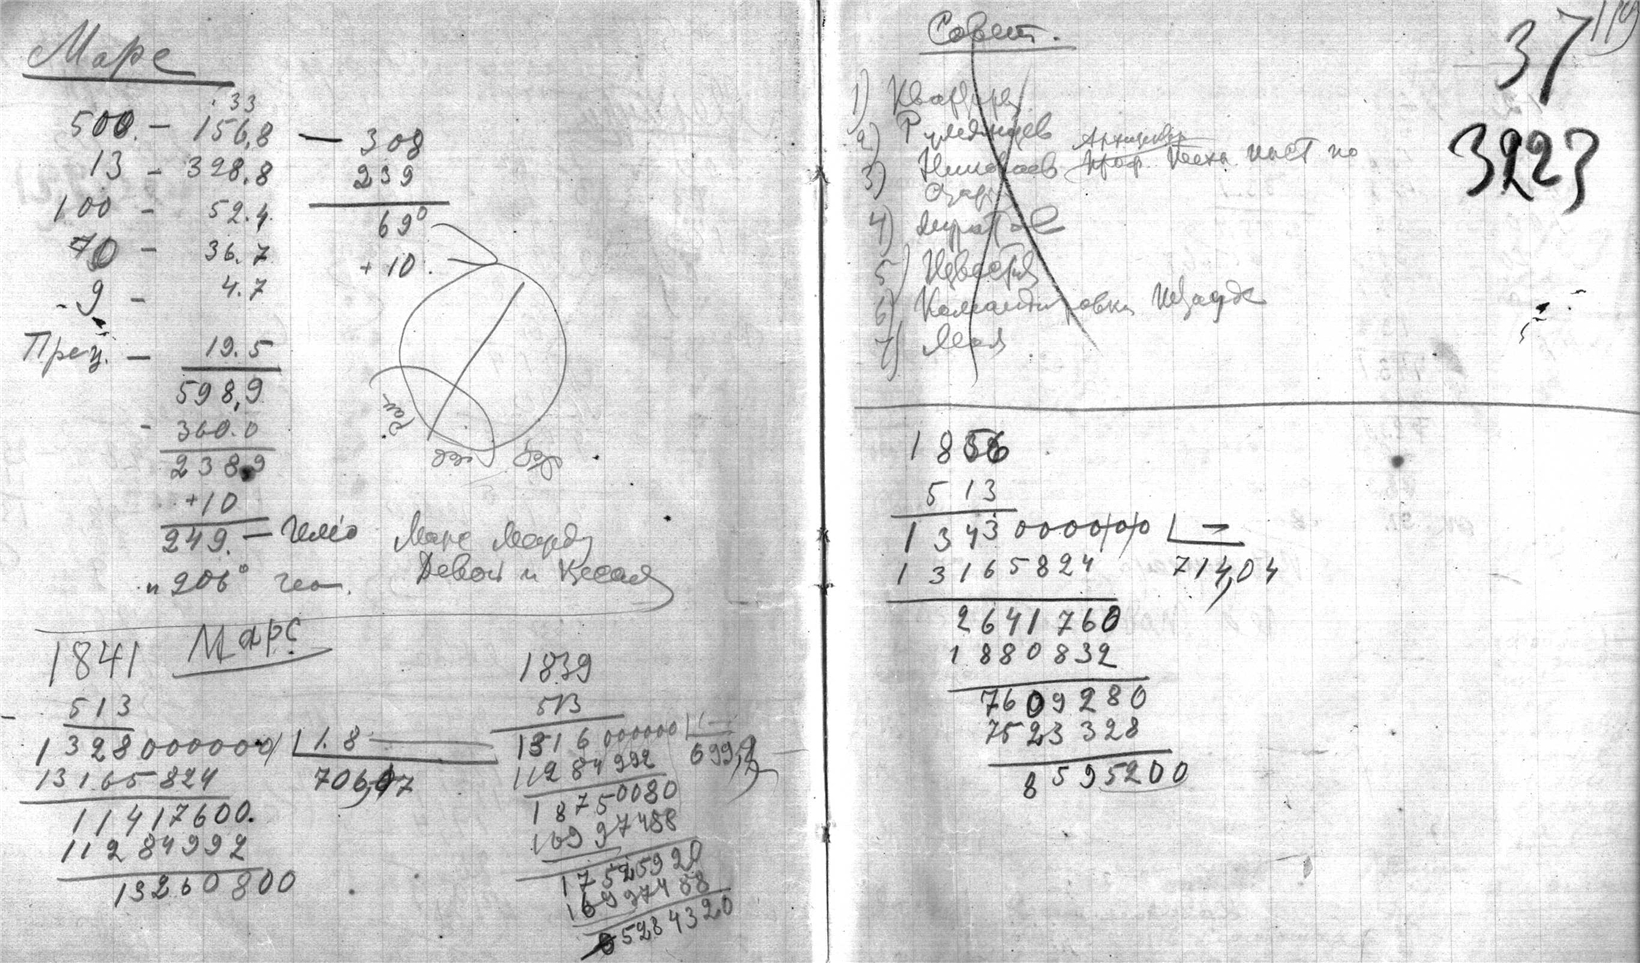 Марс
133
500. - 156,8 - 308
13 - 328.8 239
100 - 52.4 69°
70 - 36.7 +10.
9 - 4.7
Прец. - 19.5
598,9
- 360.0
238.9
+10
249. -
и 206°
Марс между
Девой и
1841 Марс
513
1328000000 | 1.8
13165824 706,07
11417600.
11284992
13260800
1839
513
1316000000
11284992 699,9
18750080
16997488
17525920
16997488
5284320
Совет.
1) Квартира
2) Румянцев
3) Николаев
4) Муратов
5) Известия
6) Командировки
7)
37
119
3223
1856
513
1343000000
13165824 714,04
2641760
1880832
7609280
7523328
8595200